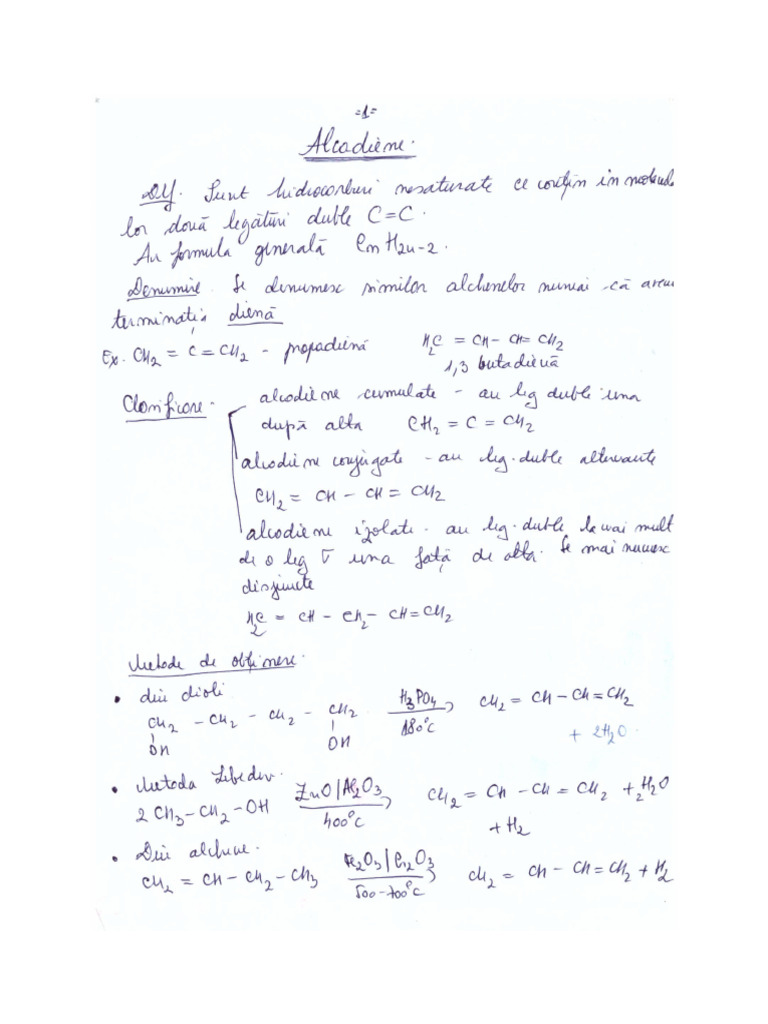 =1=
Alcadiene.
Def. Sunt hidrocarburi nesaturate ce conțin în molecula
lor două legături duble C=C.
Au formula generală CnH2n-2.
Denumire. Se denumesc similar alchenelor numai că avem
terminația dienă
Ex. CH2 = C = CH2 - propadienă H2C = CH - CH = CH2
1,3 butadienă
Clasificare - alcadiene cumulate - au leg duble una
după alta CH2 = C = CH2
alcadiene conjugate - au leg. duble alternante
CH2 = CH - CH = CH2
alcadiene izolate - au leg. duble la mai mult
de o leg σ una față de alta. Se mai numesc
disjuncte
H2C = CH - CH2 - CH = CH2
Metode de obținere.
• din dioli
CH2 - CH2 - CH2 - CH2 H3PO4 CH2 = CH - CH = CH2
OH OH 180°C + 2H2O
• Metoda Lebedev.
2 CH3 - CH2 - OH ZnO/Al2O3 CH2 = CH - CH = CH2 + 2H2O
400°C + H2
• Din alchene.
CH2 = CH - CH2 - CH3 Fe2O3/Cr2O3 CH2 = CH - CH = CH2 + H2
500-700°C